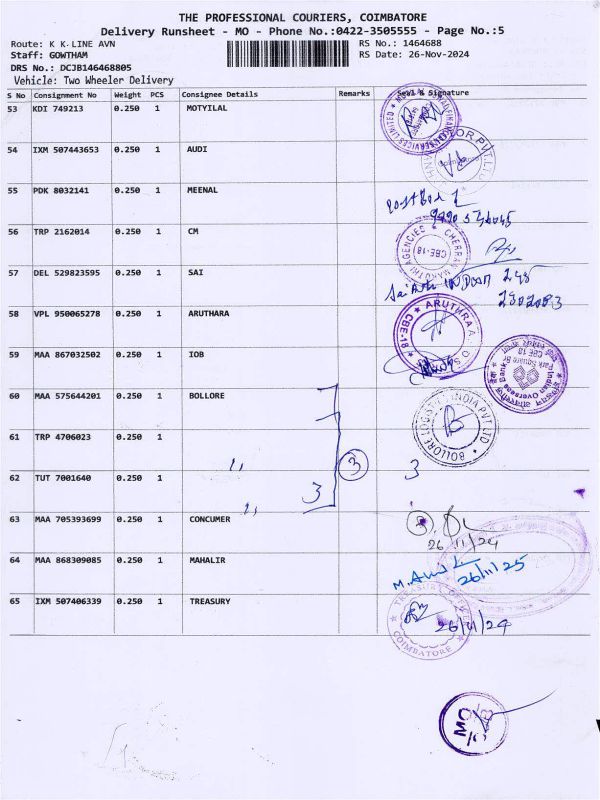 THE PROFESSIONAL COURIERS, COIMBATORE
Delivery Runsheet - MO - Phone No.:0422-3505555 - Page No.:5
Route: K K LINE AVN RS No.: 1464688
Staff: GOWTHAM RS Date: 26-Nov-2024
DRS No.: DCJB146468805
Vehicle: Two Wheeler Delivery
S No Consignment No Weight PCS Consignee Details Remarks Seal & Signature
53 KDI 749213 0.250 1 MOTYILAL
54 IXM 507443653 0.250 1 AUDI
55 PDK 8032141 0.250 1 MEENAL
56 TRP 2162014 0.250 1 CM
AGENCIES CHERRAN MARUTHI CBE-18
57 DEL 529823595 0.250 1 SAI
58 VPL 950065278 0.250 1 ARUTHARA
ARUTHRA CBE-18
59 MAA 867032502 0.250 1 IOB
Indian Overseas Bank Park Square Br CBE 18
60 MAA 575644201 0.250 1 BOLLORE
BOLLORE LOGISTICS INDIA PVT LTD
61 TRP 4706023 0.250 1
3
62 TUT 7001640 0.250 1 3 3
63 MAA 705393699 0.250 1 CONCUMER
26/11/24
64 MAA 868309085 0.250 1 MAHALIR
26/11/25
65 IXM 507406339 0.250 1 TREASURY
TREASURY COIMBATORE
26/11/24